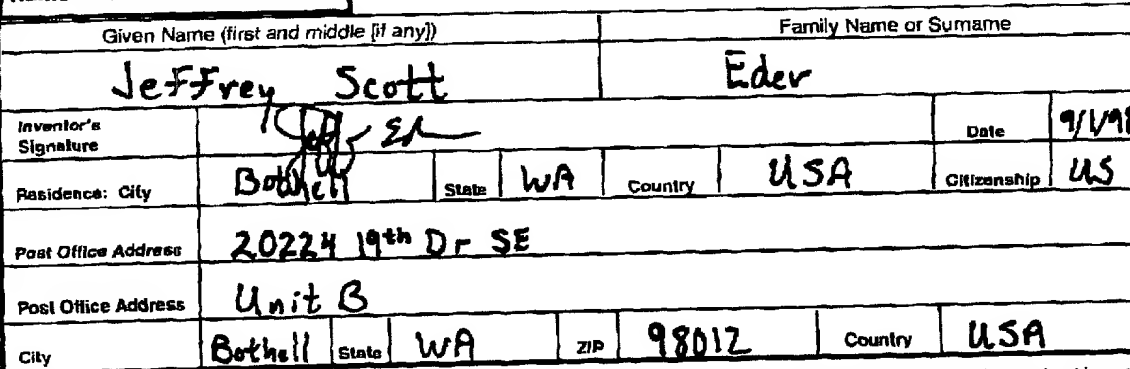 Given Name (first and middle [if any]) Family Name or Surname
Jeffrey Scott Eder
Inventor's Signature Date 9/1/98
Residence: City Bothell State WA Country USA Citizenship US
Post Office Address 20224 19th Dr SE
Post Office Address Unit B
City Bothell State WA ZIP 98012 Country USA